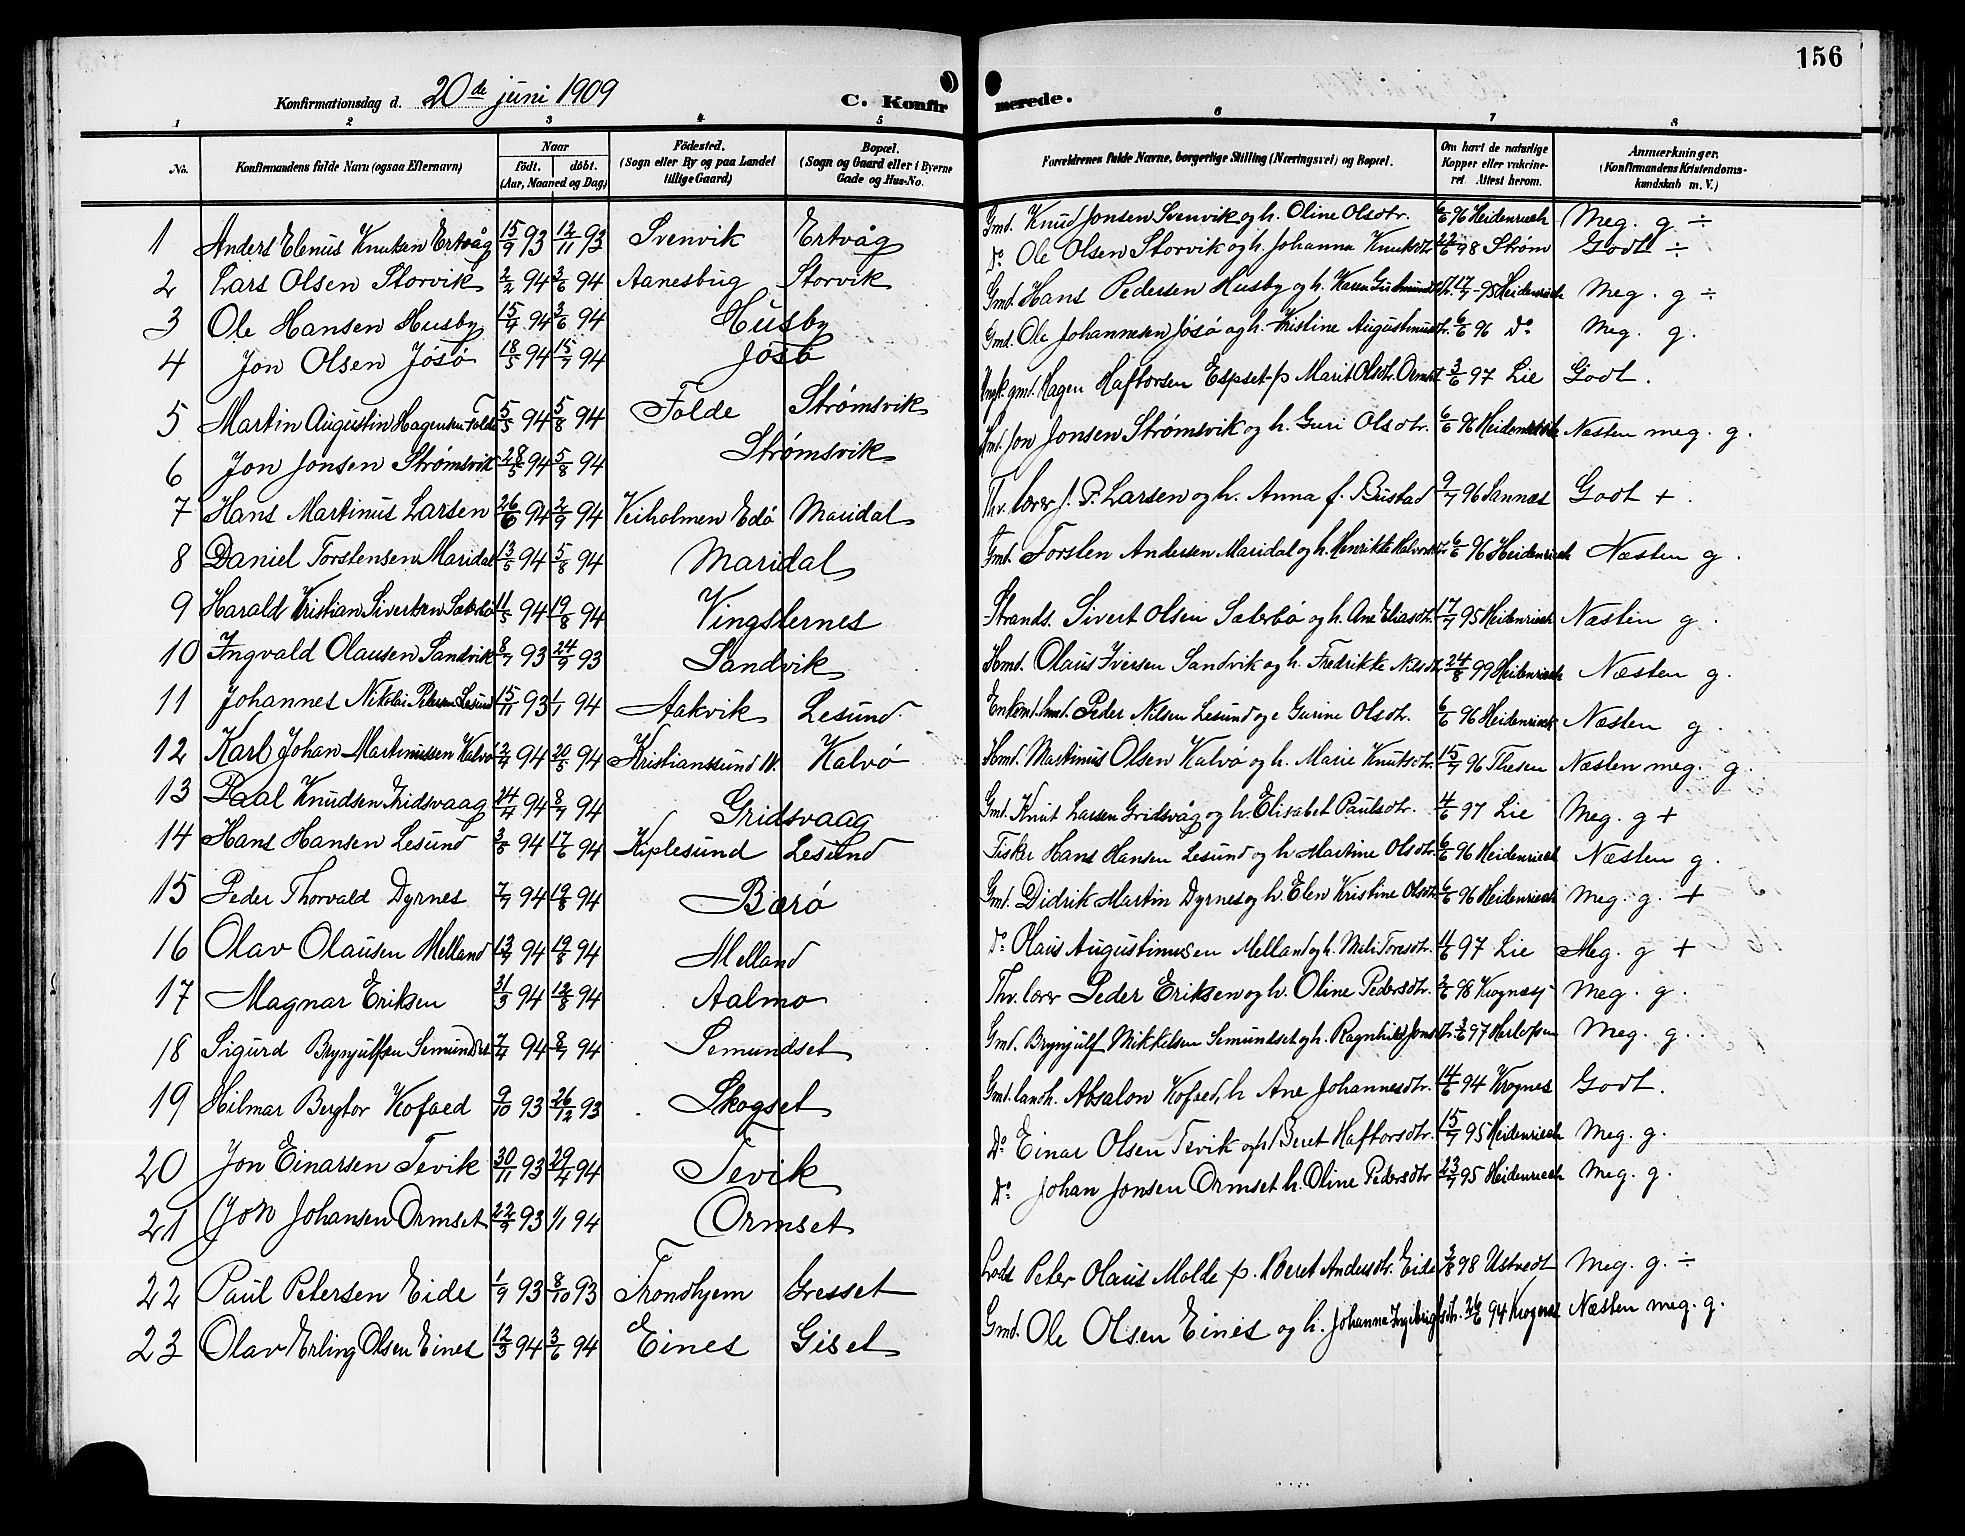 156
Konfirmationsdag d. 20de juni 1909
C. Konfirmerede.
1 2 3 4 5 6 7 8
No.
Konfirmandens fulde Navn (ogsaa Efternavn)
Naar
födt. döbt.
(Aar, Maaned og Dag)
Födested.
(Sogn eller By og paa Landet
tillige Gaard)
Bopæl.
(Sogn og Gaard eller i Byerne
Gade og Hus-No.
Forældrenes fulde Navne, borgerlige Stilling (Næringsvei) og Bopæl.
Om havt de naturlige
Kopper eller vakcine-
ret. Attest herom.
Anmærkninger.
(Konfirmandens Kristendoms-
kundskab m. V.)
1 Anders Elenus Knutsen Ertvåg 15/9 93 12/11 93 Svenvik Ertvåg Gmd. Knud Jonsen Svenvik og h. Oline Olsdtr. 6/6 96 Heidenreich Meg. g ÷
2 Lars Olsen Storvik 2/2 94 3/6 94 Aanesbug Storvik Do Ole Olsen Storvik og h. Johanna Knutsdtr. 22/6 98 Strøm Godt ÷
3 Ole Hansen Husby 15/4 94 3/6 94 Husby Gmd. Hans Pedersen Husby og h. Karen 17/7 95 Heidenreich Meg. g ÷
4 Jon Olsen Jösø 18/5 94 15/7 94 Jösö Gmd. Ole Johannesen Jösö og h. Kristine Augustinusdtr. 6/6 96 Do Meg. g.
5 Martin Augustin Hagensen Folde 5/5 94 5/8 94 Folde Strømsvik Ungk. gmd. Hagen Haftorsen Espset p Marit Olsdtr. Ormset 3/6 97 Lie Godt.
6 Jon Jonsen Strømsvik 28/5 94 5/8 94 Strømsvik Hmd. Jon Jonsen Strømsvik og h. Guri Olsdtr. 6/6 96 Heidenreich Næsten meg. g.
7 Hans Martinus Larsen 26/6 94 2/9 94 Veiholmen Edö Maridal Thv. lærer J. P. Larsen og h. Anna f. Bustad 9/7 96 Sannæs Godt +
8 Daniel Torstensen Maridal 13/5 94 5/8 94 Maridal Gmd. Torsten Andersen Maridal og h. Henrikke Halvorsdtr. 6/6 96 Heidenreich Næsten g.
9 Harald Kristian Sivertsen Sæterbö 11/5 94 19/8 94 Vingsternes Strands. Sivert Olsen Sæterbö og h. Ane Eliasdtr. 17/7 95 Heidenreich Næsten g.
10 Ingvald Olausen Sandvik 8/7 93 24/9 93 Sandvik Hmd. Olaus Iversen Sandvik og h. Fredrikke Nilsdtr. 24/8 99 Heidenreich Næsten g.
11 Johannes Nikolai Pedersen Lesund 15/11 93 1/1 94 Aakvik Lesund. Enkemd. hmd. Peder Nilsen Lesund og e Gurine Olsdtr. 6/6 96 Heidenreich Næsten g.
12 Karl Johan Martinussen Kalvö 2/4 94 20/5 94 Kristianssund N. Kalvö Hmd. Martinus Olsen Kalvö og h. Marie Knutsdtr. 15/7 96 Thesen Næsten meg. g.
13 Paal Knudsen Gridsvaag 24/4 94 8/7 94 Gridsvaag Gmd. Knut Larsen Gridsvåg og h. Elisabet Paulsdtr. 4/6 97 Lie Meg. g +
14 Hans Hansen Lesund 3/5 94 17/6 94 Kiplesund Lesund Fisker Hans Hansen Lesund og h Martine Olsdtr. 6/6 96 Heidenreich Næsten g.
15 Peder Thorvald Dyrnes 7/7 94 19/8 94 Bærö Gmd. Didrik Martin Dyrnes og h. Elen Kristine Olsdtr. 6/6 96 Heidenreich Meg. g. +
16 Olav Olausen Melland 13/7 94 19/8 94 Melland Do Olaus Augustinusen Melland og h. Mali Toresdtr. 4/6 97 Lie Meg. g +
17 Magnar Eriksen 31/3 94 12/8 94 Aalmo Thv. lærer Peder Eriksen og h. Oline Pedersdtr. 2/6 98 Krognæs Meg. g.
18 Sigurd Brynjulfsen Semundset 7/4 94 8/7 94 Semundset Gmd. Brynjulf Mikkelsen Semundset og h. Ragnhild Jonsdtr. 3/6 97 Herlofsen Meg. g.
19 Hilmar Bergtor Kofoed 9/10 93 26/12 93 Skogset Gmd. landh. Absalon Kofoed, h Ane Johannesdtr. 14/6 94 Krognes Godt.
20 Jon Einarsen Tevik 30/11 93 29/4 94 Tevik Do Einar Olsen Tevik og h Beret Haftorsdtr. 15/7 95 Heidenreich Meg. g.
21 Jon Johansen Ormset 22/9 93 1/1 94 Ormset Do Johan Jonsen Ormset h. Oline Pedersdtr 23/7 95 Heidenreich Meg. g.
22 Paul Petersen Eide 1/9 93 8/10 93 Trondhjem Gresset Lods Peter Olaus Molde p. Beret Andersdtr. Eide 3/8 98 Ustvedt Meg. g. ÷
23 Olav Erling Olsen Eines 12/3 94 3/6 94 Eines Giset Gmd. Ole Olsen Eines og h. Johanna Ingebrigtsdtr. 26/6 94 Krognes Næsten meg. g.